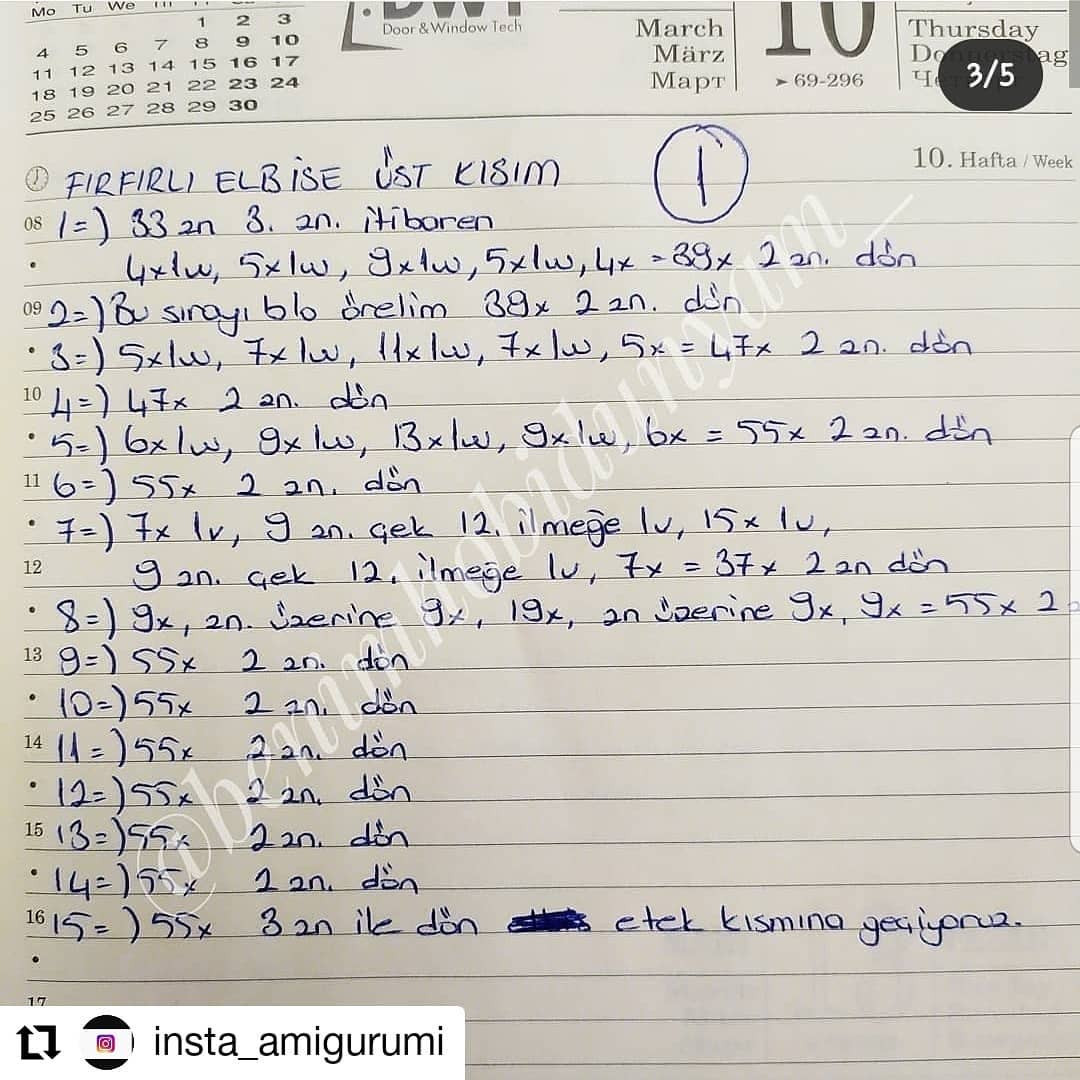 Mo Tu We
1 2 3
4 5 6 7 8 9 10
11 12 13 14 15 16 17
18 19 20 21 22 23 24
25 26 27 28 29 30
Door & Window Tech
March
März
Март
10
➤ 69-296
Thursday
3/5
10. Hafta / Week
1
FIRFIRLI ELBİSE ÜST KISIM
08 1=) 33 zn 3. zn. itibaren
4x1w, 5x1w, 9x1w, 5x1w, 4x = 39x 2 zn. dön
09 2=) Bu sırayı blo örelim 39x 2 zn. dön
3=) 5x1w, 7x1w, 11x1w, 7x1w, 5x = 47x 2 zn. dön
10 4=) 47x 2 zn. dön
5=) 6x1w, 9x1w, 13x1w, 9x1w, 6x = 55x 2 zn. dön
11 6=) 55x 2 zn. dön
7=) 7x 1v, 9 zn. çek 12. ilmeğe 1v, 15x 1v,
12 9 zn. çek 12. ilmeğe 1v, 7x = 37x 2 zn dön
8=) 9x, zn. üzerine 9x, 19x, zn üzerine 9x, 9x = 55x 2
13 9=) 55x 2 zn. dön
10=) 55x 2 zn. dön
14 11=) 55x 2 zn. dön
12=) 55x 2 zn. dön
15 13=) 55x 2 zn. dön
14=) 55x 2 zn. dön
16 15=) 55x 3 zn ile dön etek kısmına geçiyoruz.
17
@benimhobidunyam_
insta_amigurumi